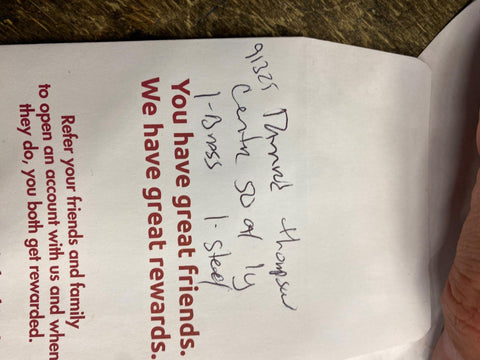 91325 Thompson
Center 50 of 1y
1-Brass 1-Steel
You have great friends.
We have great rewards.
Refer your friends and family
to open an account with us and when
they do, you both get rewarded.